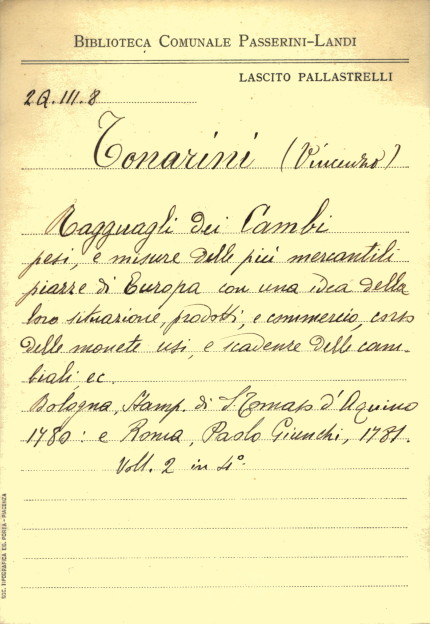 BIBLIOTECA COMUNALE PASSERINI-LANDI
LASCITO PALLASTRELLI
2Q.III.8
Tonarini (Vincenzo)
Ragguagli dei Cambi
pesi, e misure delle più mercantili
piazze di Europa con una idea della
loro situazione, prodotti, e commercio, corso
delle monete usi, e scadenze delle cam-
biali, ec.
Bologna, Stamp. di S. Tomaso d'Aquino
1780: e Roma, Paolo Giunchi, 1781.
Voll. 2 in 4°.
SOC. TIPOGRAFICA ED. PORTA - PIACENZA